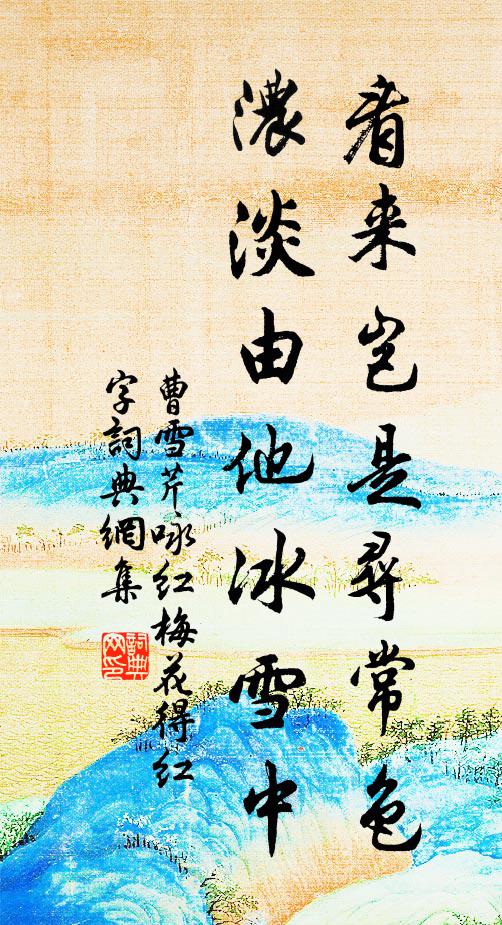 看来岂是尋常色
濃淡由他冰雪中
曹雪芹咏红梅花得红
字詞典網集
詞典
网印